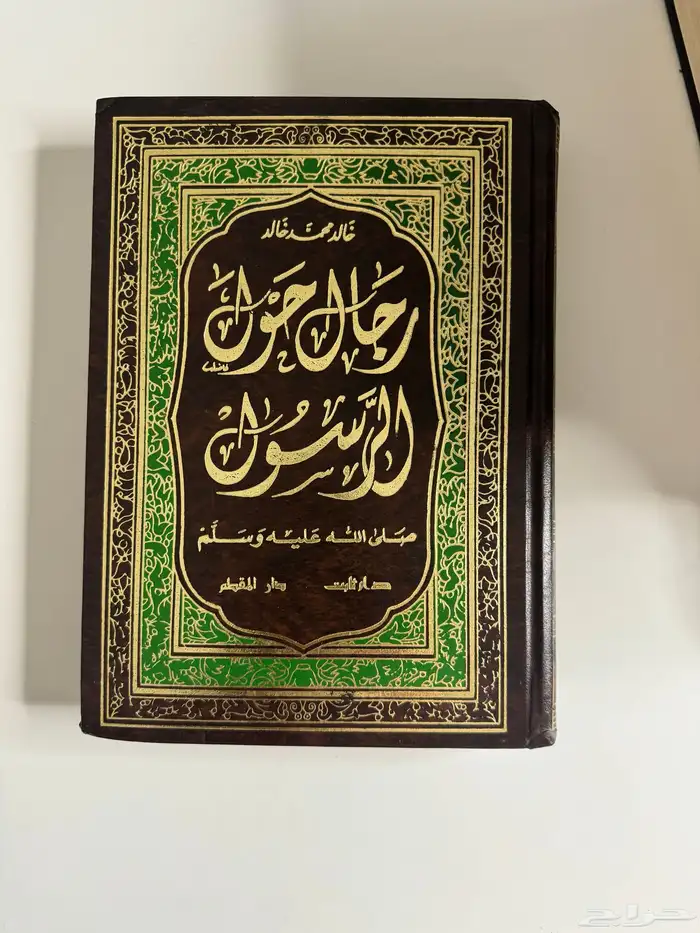 خالد محمد خالد
رجال حول
الرسول
صلى الله عليه وسلم
دار ثابت دار المقطم
حراج